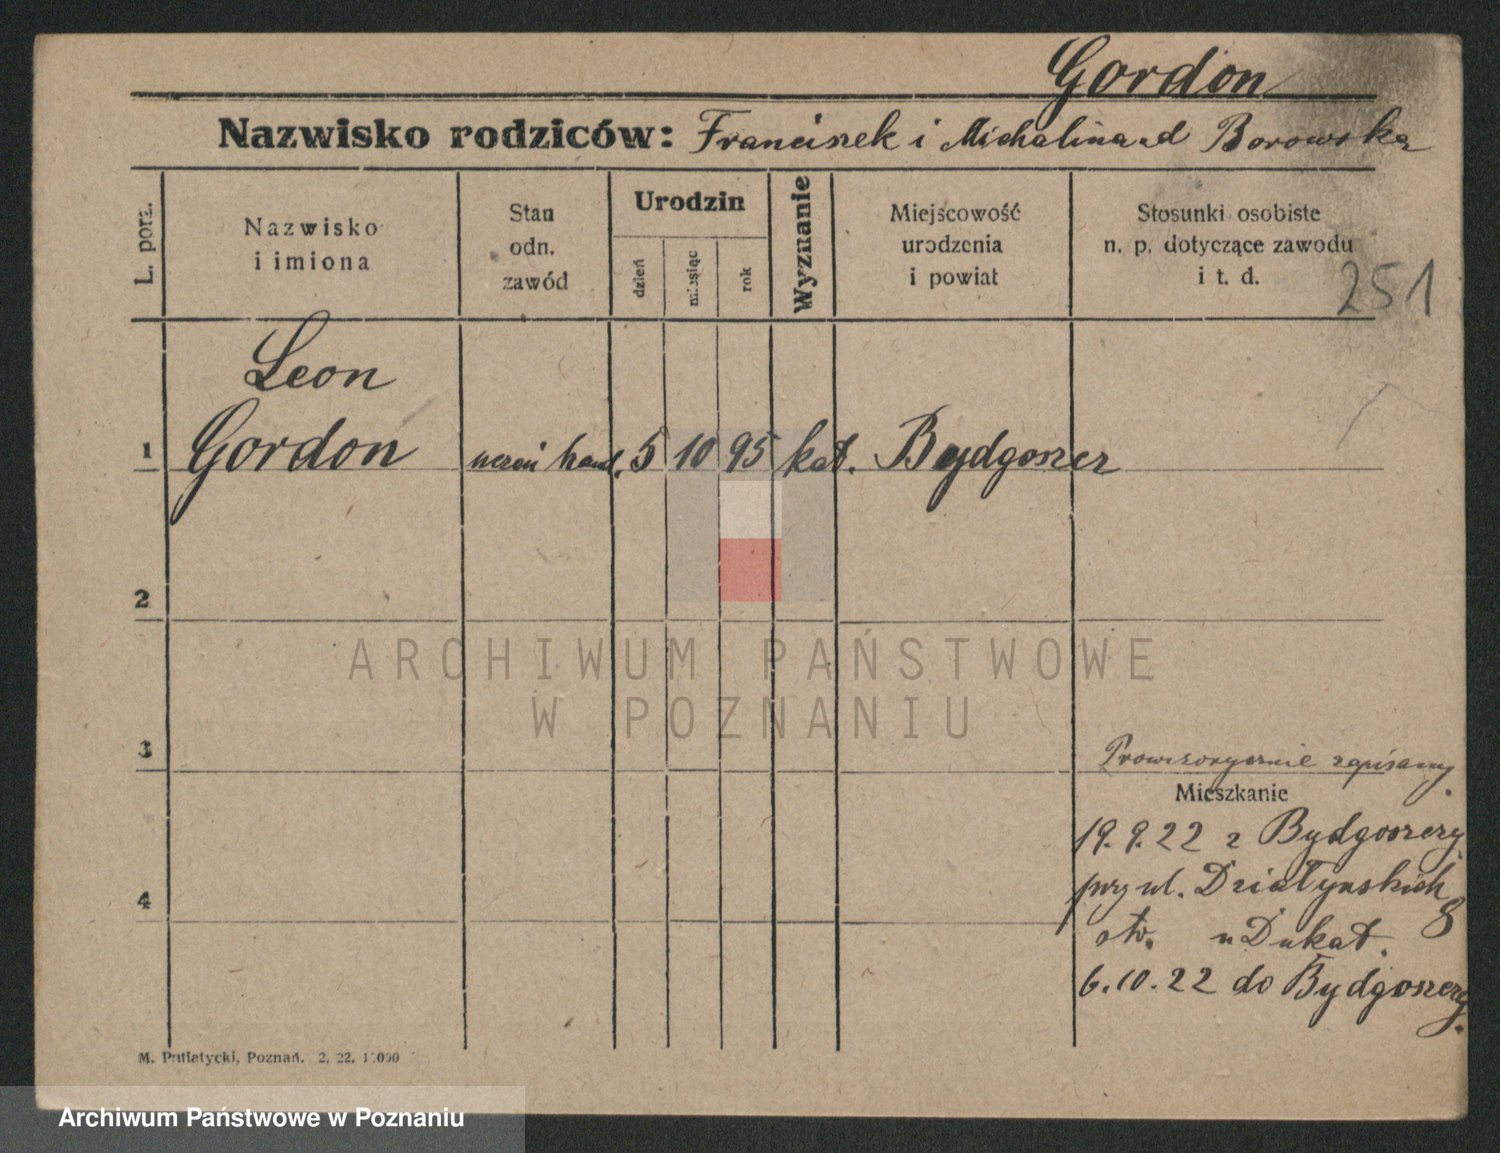 Gordon
Nazwisko rodziców: Franciszek i Michalina d Borowska
L. porz.
Nazwisko
i imiona
Stan
odn.
zawód
Urodzin
dzień
miesiąc
rok
Wyznanie
Miejscowość
urodzenia
i powiat
Stosunki osobiste
n. p. dotyczące zawodu
i t. d.
251
Leon
1 Gordon uczeń hand. 5 10 95 kat. Bydgoszcz
2
ARCHIWUM PAŃSTWOWE
W POZNANIU
3
Prowizorycznie zapisany.
Mieszkanie
19.9.22 z Bydgoszczy
przy ul. Działyńskich 8
4
otw. u Dukat.
6.10.22 do Bydgoszczy.
M. Putiatycki, Poznań. 2. 22. 
Archiwum Państwowe w Poznaniu